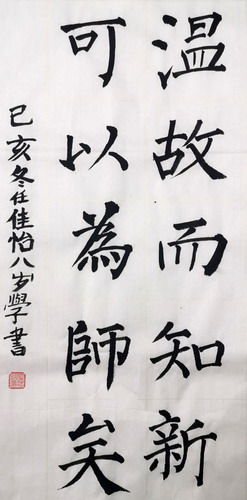 温故而知新
可以為師矣
己亥冬任佳怡八岁學書